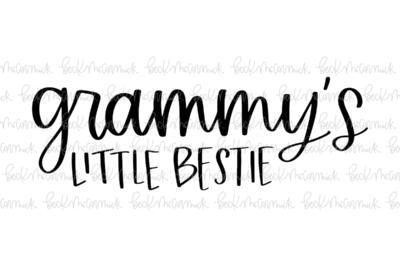 grammy's
LITTLE BESTIE